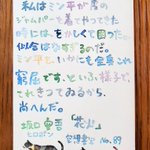 私はミン平が君の
ジャムパーを着てやってきた
時には、をかしくて困った。
似合はなすぎるのだ。
ミン平も、いかにも全身これ
窮屈です、といふ様子で、
てれきってゐるから、
尚へんだ。
坂口安吾「花火」
ヒロポン
安吾書記 No.89